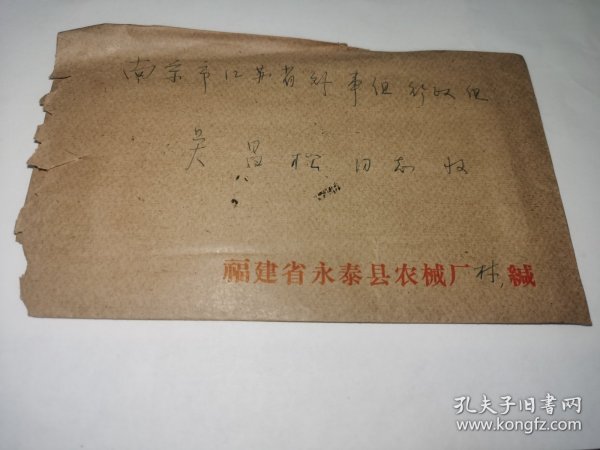 南京市江苏省外事组行政组
吴昌松同志收
福建省永泰县农械厂林,缄
孔夫子旧书网
www.kongfz.com